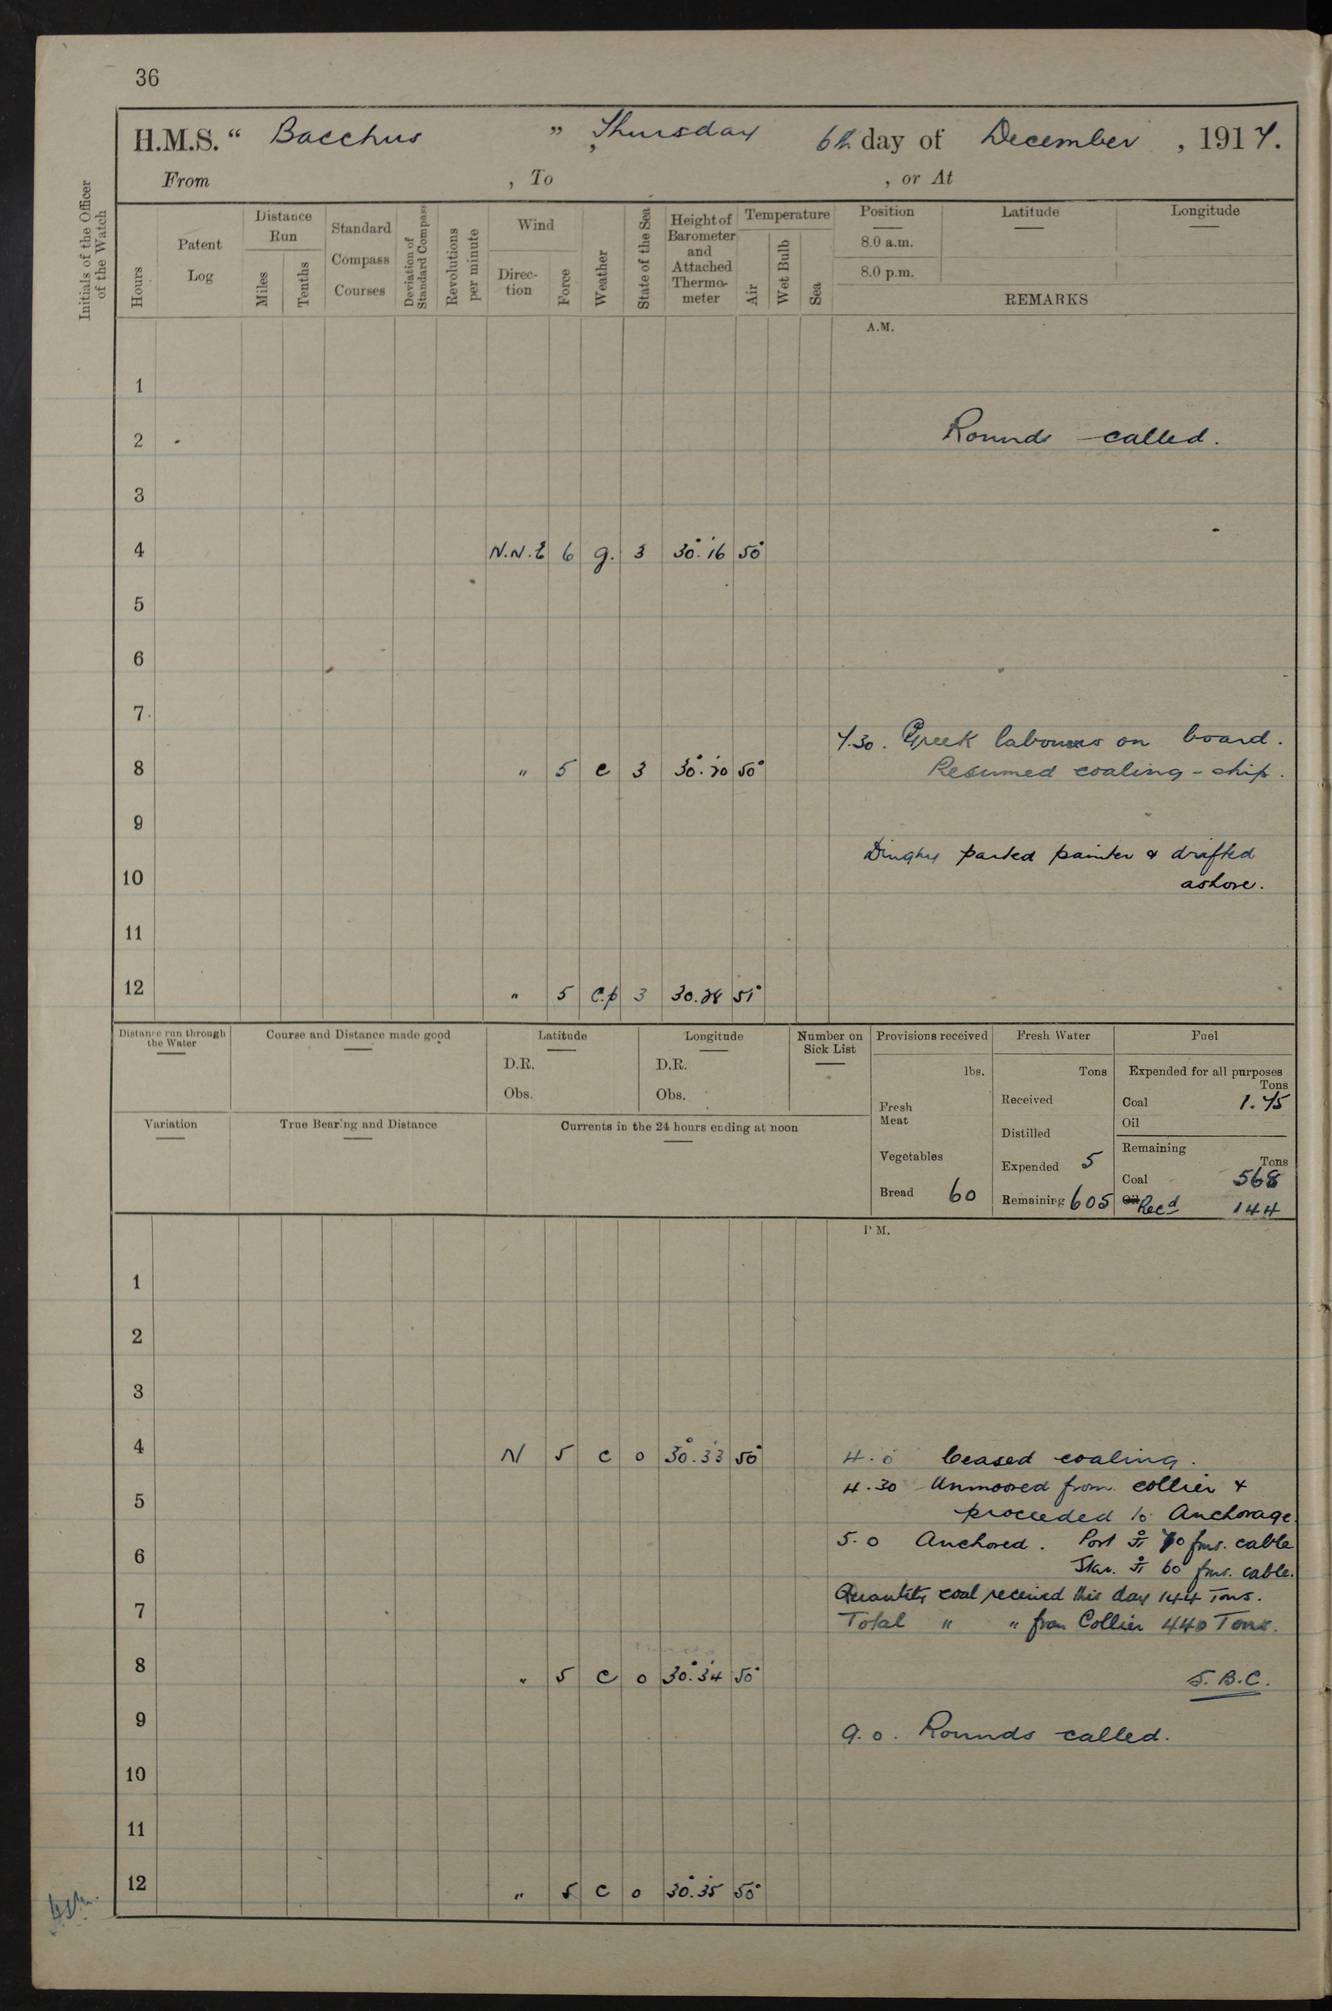 36
H.M.S. “ Bacchus ” , Thursday 6th day of December , 1917.
From , To , or At
Initials of the Officer of the Watch
Hours
Patent Log
Distance Run
Miles
Tenths
Standard Compass Courses
Deviation of Standard Compass
Revolutions per minute
Wind
Direc-tion
Force
Weather
State of the Sea
Height of Barometer and Attached Thermo-meter
Temperature
Air
Wet Bulb
Sea
Position Latitude Longitude
8.0 a.m.
8.0 p.m.
REMARKS
A.M.
1
2 Rounds called.
3
4 N.N.E 6 g. 3 30°.16 50°
5
6
7
7.30. Greek labourers on board.
8 " 5 c 3 30°.20 50° Resumed coaling-ship.
9
Dinghy parted painter & drifted
10 ashore.
11
12 " 5 c.p 3 30.28 51°
Distance run through the Water
Course and Distance made good
Latitude
D.R.
Obs.
Longitude
D.R.
Obs.
Number on Sick List
Provisions received
lbs.
Fresh Meat
Vegetables
Bread 60
Fresh Water
Tons
Received
Distilled
Expended 5
Remaining 605
Fuel
Expended for all purposes
Tons
Coal 1.75
Oil
Remaining
Tons
Coal 568
Oil Recd 144
Variation
True Bearing and Distance
Currents in the 24 hours ending at noon
P.M.
1
2
3
4 N 5 c o 30°.33 50° 4.0 Ceased coaling.
4.30 Unmoored from collier &
5 proceeded to Anchorage.
5.0 Anchored. Port 70 fms. cable
6 Star. 60 fms. cable.
Quantity coal received this day 144 Tons.
7 Total " " from Collier 440 Tons.
8 " 5 c o 30°.34 50° S.B.C.
9 9.0. Rounds called.
10
11
12 " 5 c o 30°.35 50°